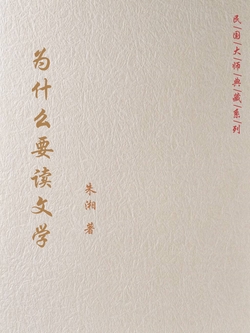 民/国/大/师/典/藏/系/列
为什么要读文学
朱湘 著